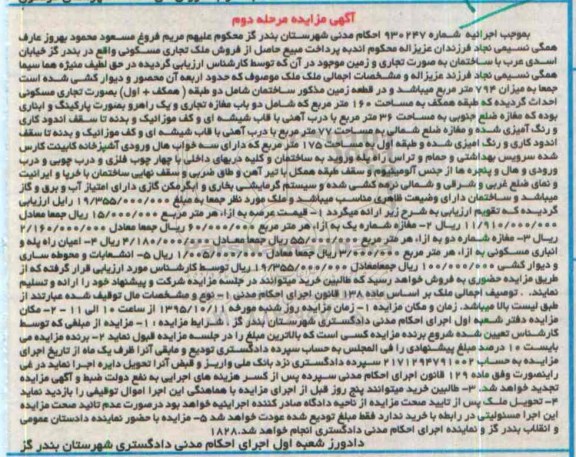 آگهی مزایده مرحله دوم
بموجب اجرائیه شماره ۹۳۰۲۴۷ احکام مدنی شهرستان بندر گز محکوم علیهم مریم فروغ مسعود محمود بهروز عارف
همگی نسیمی نجاد فرزندان عزیزاله محکوم اند به پرداخت مبیع حاصل از فروش ملک تجاری مسکونی واقع در بندر گز خیابان
اسدی عرب با ساختمان به صورت تجاری و زمین موجود در آن که توسط کارشناس ارزیابی گردیده در حق لطیف منیژه هما سیما
همگی نسیمی نجاد فرزند عزیزاله و مشخصات اجمالی ملک ملک موصوف که حدود اربعه آن محصور و دیوار کشی شده است
جمعا به میزان ۷۹۴ متر مربع میباشد و در قطعه زمین مذکور ساختمان شامل دو طبقه ( همکف + اول) بصورت تجاری مسکونی
احداث گردیده که طبقه همکف به مساحت ۱۶۰ متر مربع که شامل دو باب مغازه تجاری و یک راهرو بصورت پارکینگ و انباری
بوده که مغازه ضلع جنوبی به مساحت ۳۶ متر مربع با درب آهنی با قاب شیشه ای و کف موزائیک و بدنه تا سقف اندود کاری
و رنگ آمیزی شده و مغازه ضلع شمالی به مساحت ۷۷ متر مربع با درب آهنی با قاب شیشه ای و کف موزائیک و بدنه تا سقف
اندود کاری و رنگ امیزی شده و طبقه اول به مساحت ۱۷۵ متر مربع که دارای سه خواب هال ورودی آشپزخانه کابینت کارس
شده سرویس بهداشتی و حمام و تراس راه پله ورود به ساختمان و کلیه دربهای داخلی با چهار چوب فلزی و درب چوبی و درب
ورودی و هال و پنجره ها از جنس آلومینیوم و سقف طبقه همکل با تیر آهن و طاق ضربی و سقف نهایی ساختمان با خرپا و ایرانیت
و نمای ضلع غربی و شرقی و شمالی نرمه کشی شده و سیستم گرمایشی بخاری و ابگرمکن گازی دارای امتیاز آب و برق و گاز
میباشد و ساختمان دارای وضعیت ظاهری مناسب میباشد و ملک مورد نظر جمعا به مبلغ ۱۹/۳۵۵/۰۰۰/۰۰۰ رایل ارزیابی
گردیده که تقویم ارزیابی به شرح زیر ارائه میگردد ۱- قیمت عرصه به ازاء هر متر مربع ۱۵/۰۰۰/۰۰۰ ریال جمعا معادل
۱۱/۹۱۰/۰۰۰/۰۰۰ ریال ۲- مغازه شماره یک به ازاء هر متر مربع ۶۰/۰۰۰/۰۰۰ ریال جمعا معادل ۲/۱۶۰/۰۰۰/۰۰۰
ریال ۳- مغازه شماره دو به ازاء هر متر مربع ۵۵/۰۰۰/۰۰۰ ریال جمعا معادل ۴/۱۸۰/۰۰۰/۰۰۰ ریال ۴- اعیان راه پله و
انباری مسکونی به ازاء هر متر مربع ۳/۰۰۰/۰۰۰ ریال جمعا معادل ۱/۰۰۵/۰۰۰/۰۰۰ ریال ۵- انشعابات و محوطه سازی
و دیوار کشی ۱۰۰/۰۰۰/۰۰۰ ریال جمعا معادل ۱۹/۳۵۵/۰۰۰/۰۰۰ ریال توسط کارشناس مورد ارزیابی قرار گرفته که از
طریق مزایده حضوری به فروش خواهد رسید که طالبین خرید میتوانند در جلسه مزایده شرکت و پیشنهاد خود را ارائه و تسلیم
نمایند. . توصیف اجمالی ملک بر اساس ماده ۱۳۸ قانون اجرای احکام مدنی ۱- نوع و مشخصات مال توقیف شده عبارتند از
طبق لیست بالا میباشد. زمان و مکان مزایده ۱- زمان مزایده روز شنبه مورخه ۱۳۹۵/۱۰/۱۱ از ساعت ۱۰ الی ۱۱ ۲- مکان
مزایده دفتر شعبه اول اجرای احکام مدنی دادگستری شهرستان بندر گز . شرایط مزایده ۱- مزایده از مبلغی که توسط
کارشناس تعیین شده شروع برنده مزایده کسی است که بالاترین مبلغ را در جلسه مزایده قبول نماید ۲- برنده مزایده می
بایست ۱۰ درصد مبلغ پیشنهادی را فی المجلس به حساب سپرده دادگستری تودیع و مابقی آنرا ظرف یک ماه از تاریخ اجرای
مزایده به حساب ۲۱۷۱۲۹۴۷۹۱۰۰۲ سپرده دادگستری نزد بانک ملی واریز و قبض آنرا تحویل دایره اجرا نماید در غی
راینصورت وفق ماده ۱۲۹ قانون اجرای احکام مدنی سپرده پس از کسر هزینه های اجرایی به نفع دولت ضبط و آگهی مزایده
تجدید خواهد شد. ۳- طالبین خرید میتوانند پنج روز قبل از اجرای مزایده با هماهنگی این اجرا اموال توقیفی را بازدید نماید
۴- تحویل ملک پس از تایید صحت مزایده از ناحیه دادگاه صادر کننده اجرائیه خواهد بود در صورت عدم تائید صحت مزایده
این اجرا مسئولیتی در رابطه با خرید ندارد فقط مبلغ تودیع شده عودت خواهد شد ۵- مزایده با حضور نماینده دادستان عمومی
و انقلاب بندر گز و نماینده اجرای احکام مدنی دادگستری انجام خواهد شد.۱۸۲۸
دادورز شعبه اول اجرای احکام مدنی دادگستری شهرستان بندر گز